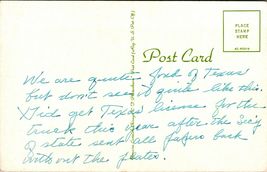 PLACE
STAMP
HERE
Post Card
We are quite fond of Texas
but don't see it quite like this.
Did get Texas license for the
truck this year after the Sec'y
of state sent all papers back
without the plates.